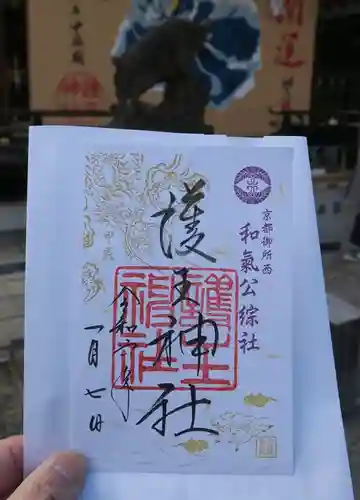 開運
京都御所西
和氣公綜社
護王神社
護王神社
甲辰
令和六年
一月七日